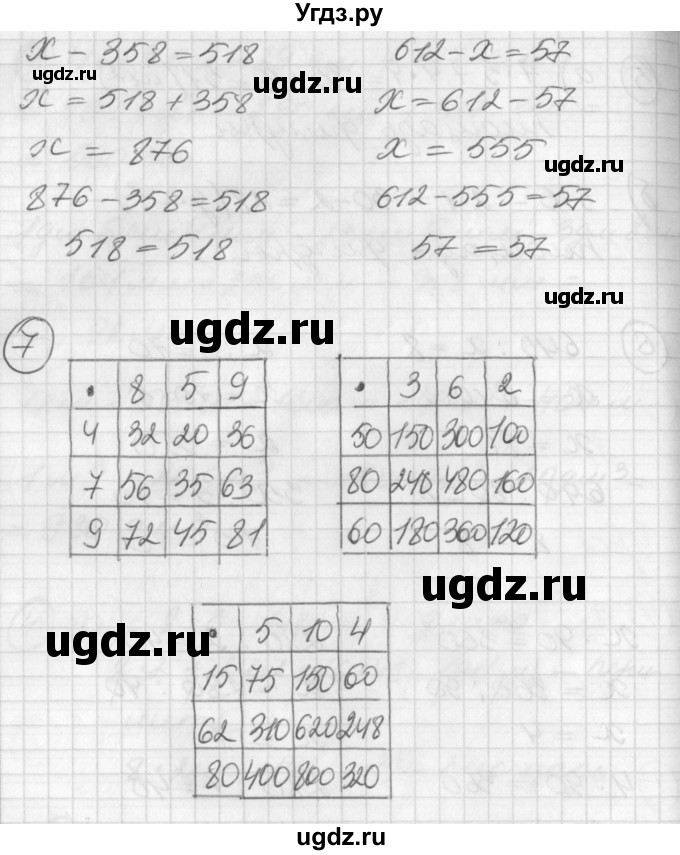 Угдз.ру
x - 358 = 518 612 - x = 57
ugdz.ru
x = 518 + 358 x = 612 - 57
ugdz.ru
x = 876 x = 555
ugdz.ru
876 - 358 = 518 612 - 555 = 57
518 = 518 57 = 57
ugdz.ru
7 ugdz.ru
· 8 5 9
4 32 20 36
7 56 35 63
9 72 45 81
· 3 6 2
50 150 300 100
80 240 480 160
60 180 360 120
ugdz.ru
ugdz.ru
· 5 10 4
15 75 150 60
62 310 620 248
80 400 800 320
ugdz.ru
ugdz.ru